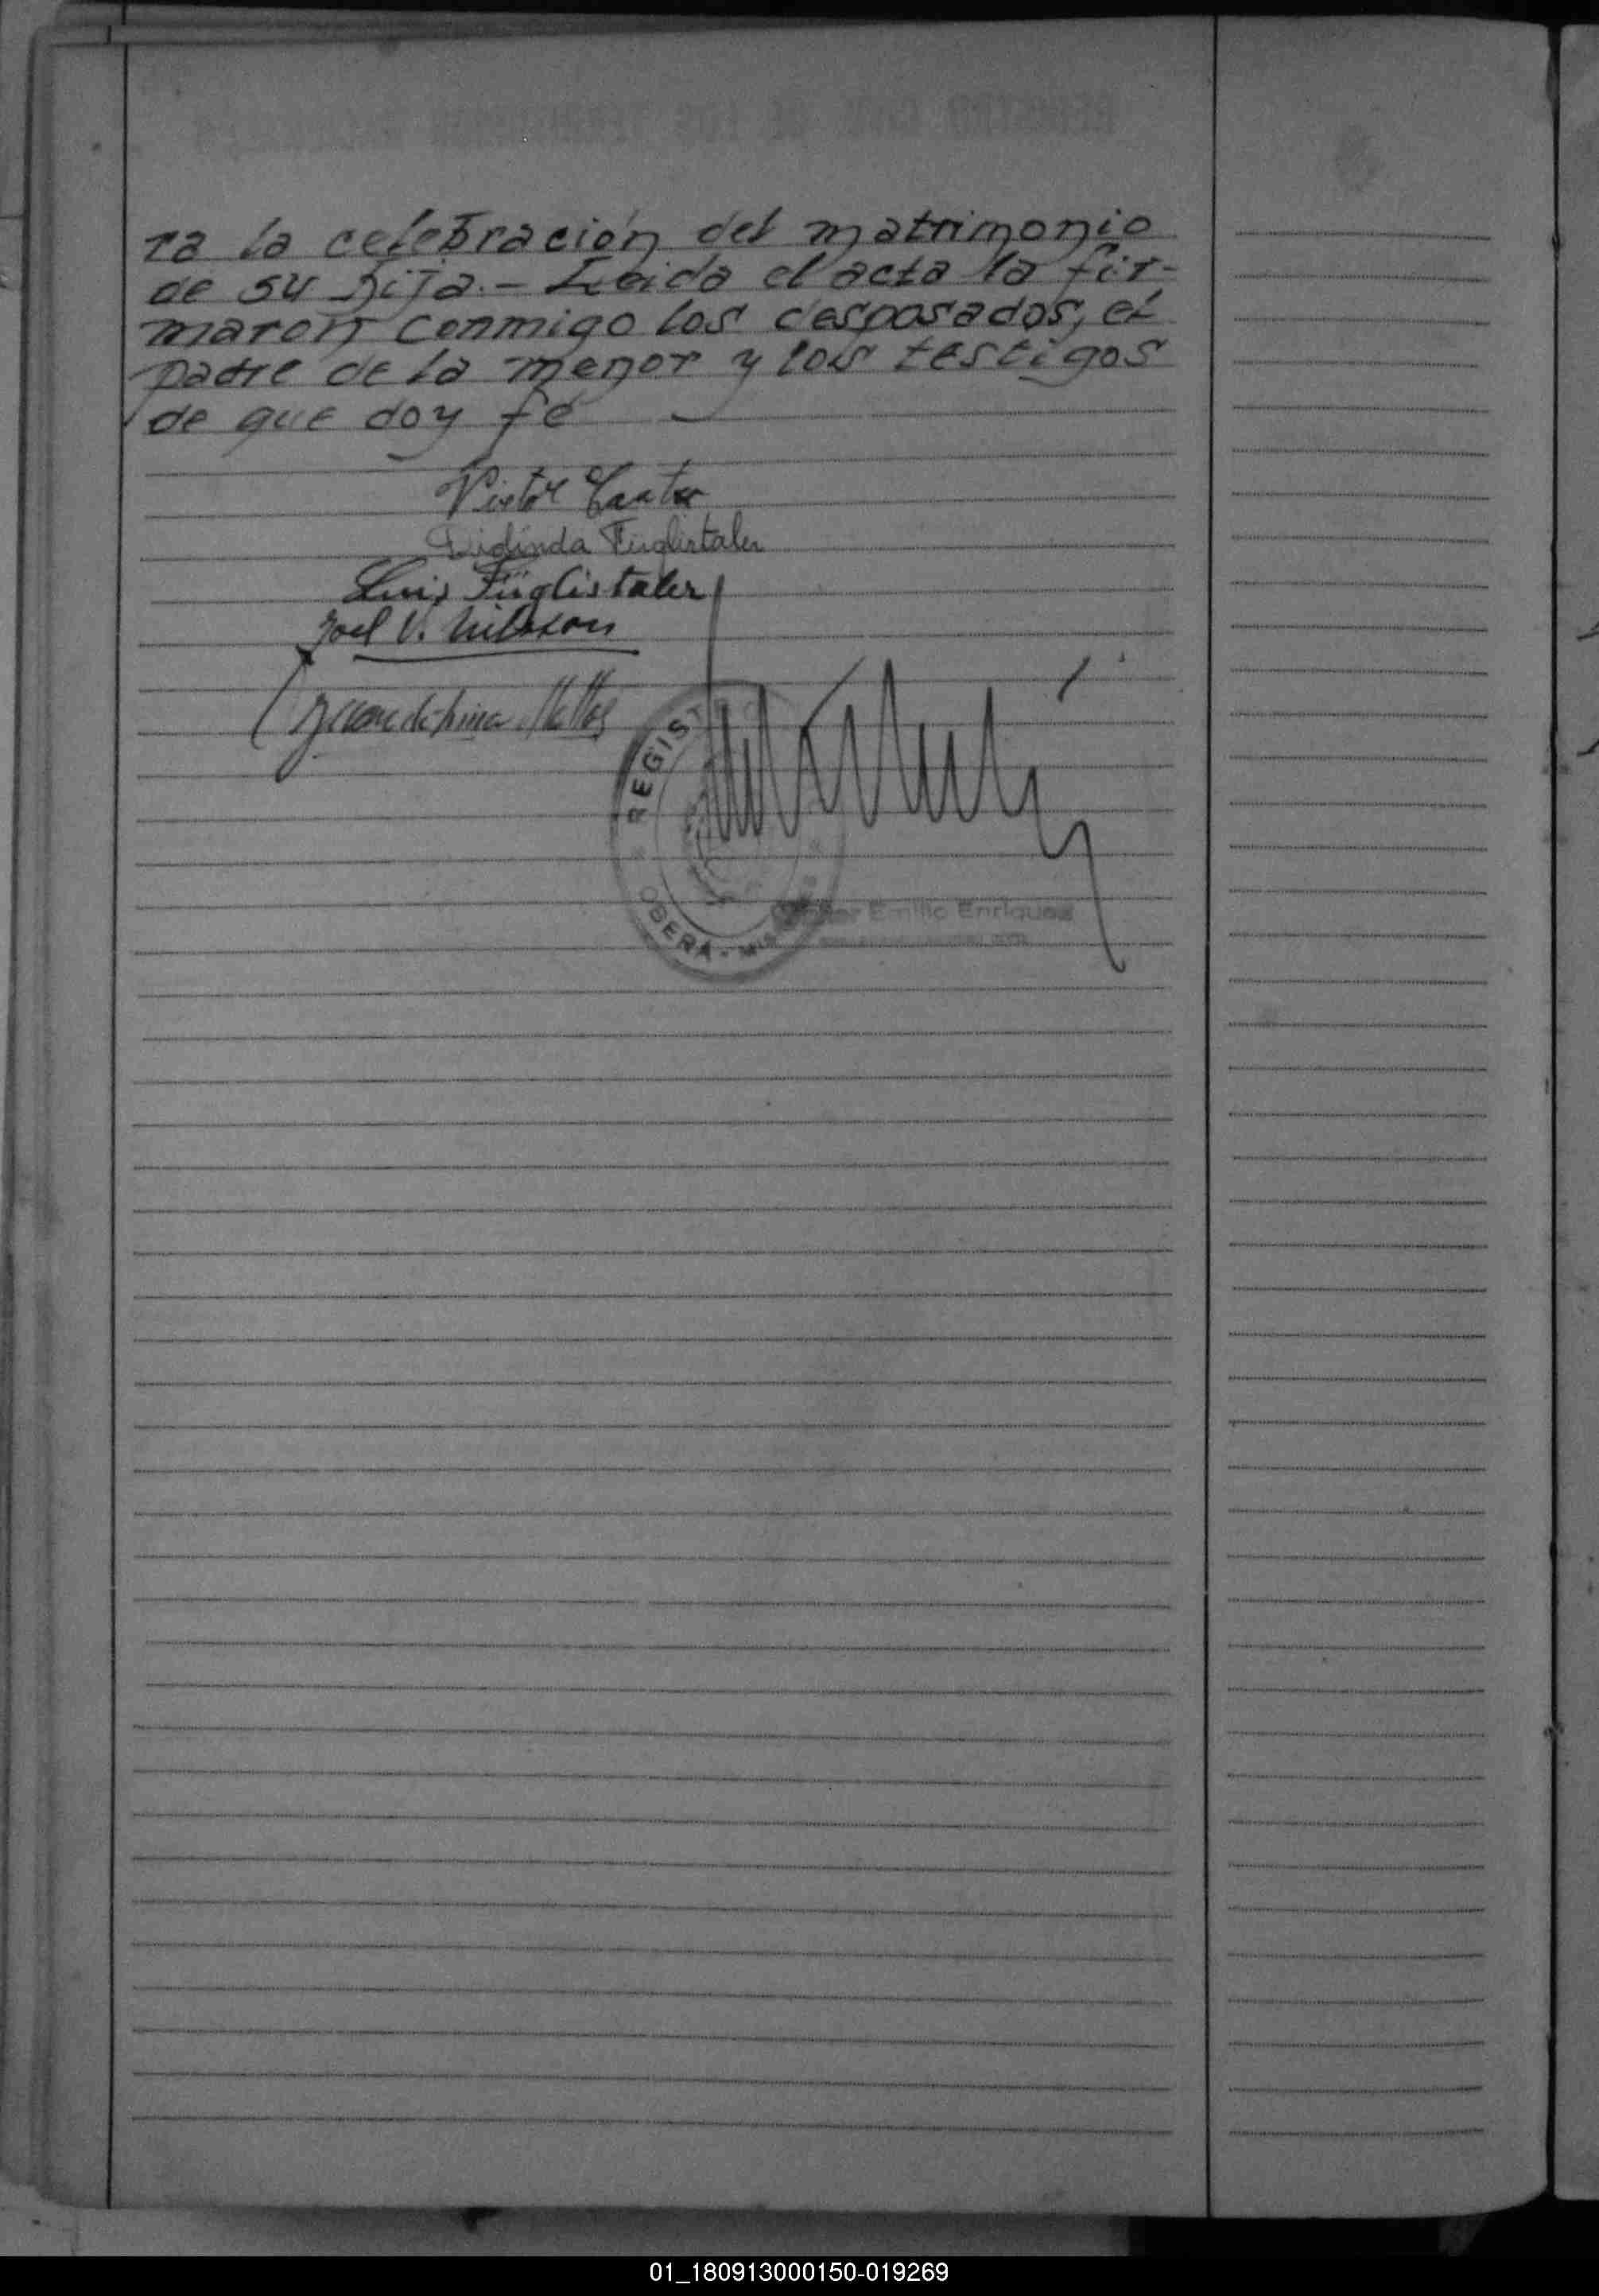 ra la celebración del matrimonio
de su hija.- Leida el acta la fir-
maron conmigo los desposados, el
padre de la menor y los testigos
de que doy fé
Victor
Fuglistaler
Luis Füglistaler
Joel V. Nilsson
REGIST
OBERÁ - MIS
Emilio Enriquez
01_180913000150-019269